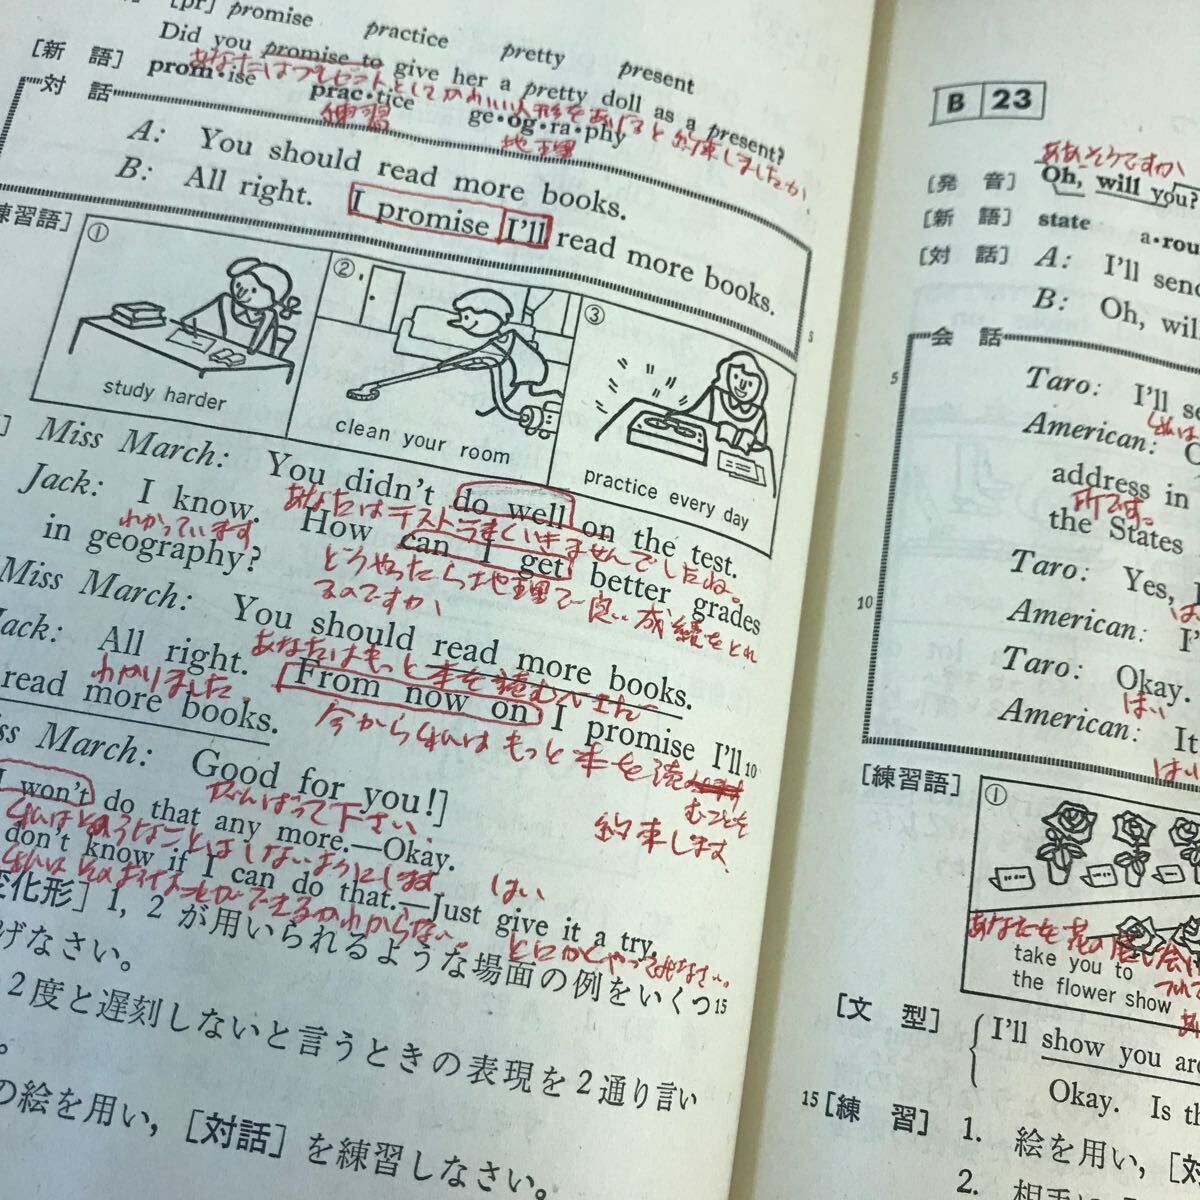 [pr] promise practice pretty present
Did you promise to give her a pretty doll as a present?
あなたはプレゼントとしてかわいい人形をあげると約束しましたか
[新 語] prom•ise prac•tice ge•og•ra•phy
練習
地理
対 話
A: You should read more books.
B: All right. I promise I'll read more books.
5
練習語]
① study harder
② clean your room
③ practice every day
Miss March: You didn't do well on the test.
あなたはテストうまくいきませんでしたね。
Jack: I know. How can I get better grades
わかっています
どうやったら地理で良い成績をとれ
in geography?
るのですか
Miss March: You should read more books.
あなたはもっと本を読むべきだ
Jack: All right. From now on I promise I'll 10
わかりました
今から私はもっと本を読
むことを
約束します
read more books.
Miss March: Good for you!]
がんばって下さい
I won't do that any more.—Okay.
はい
don't know if I can do that.—Just give it a try.
とにかくやってみなさい。
変化形] 1, 2 が用いられるような場面の例をいくつ 15
げなさい。
2度と遅刻しないと言うときの表現を2通り言い
。
の絵を用い,[対話]を練習しなさい。
B 23
ああそうですか
[発 音] Oh, will you?
[新 語] state a•rou
[対 話] A: I'll send
B: Oh, wil
会 話
5
Taro: I'll se
American: O
address in
所です。
the States
Taro: Yes, I
10
American: I'
Taro: Okay.
はい
American: It
はい
[練習語]
①
take you to
the flower show
[文 型] I'll show you aro
Okay. Is th
15 [練 習] 1. 絵を用い,[対
2. 相手に